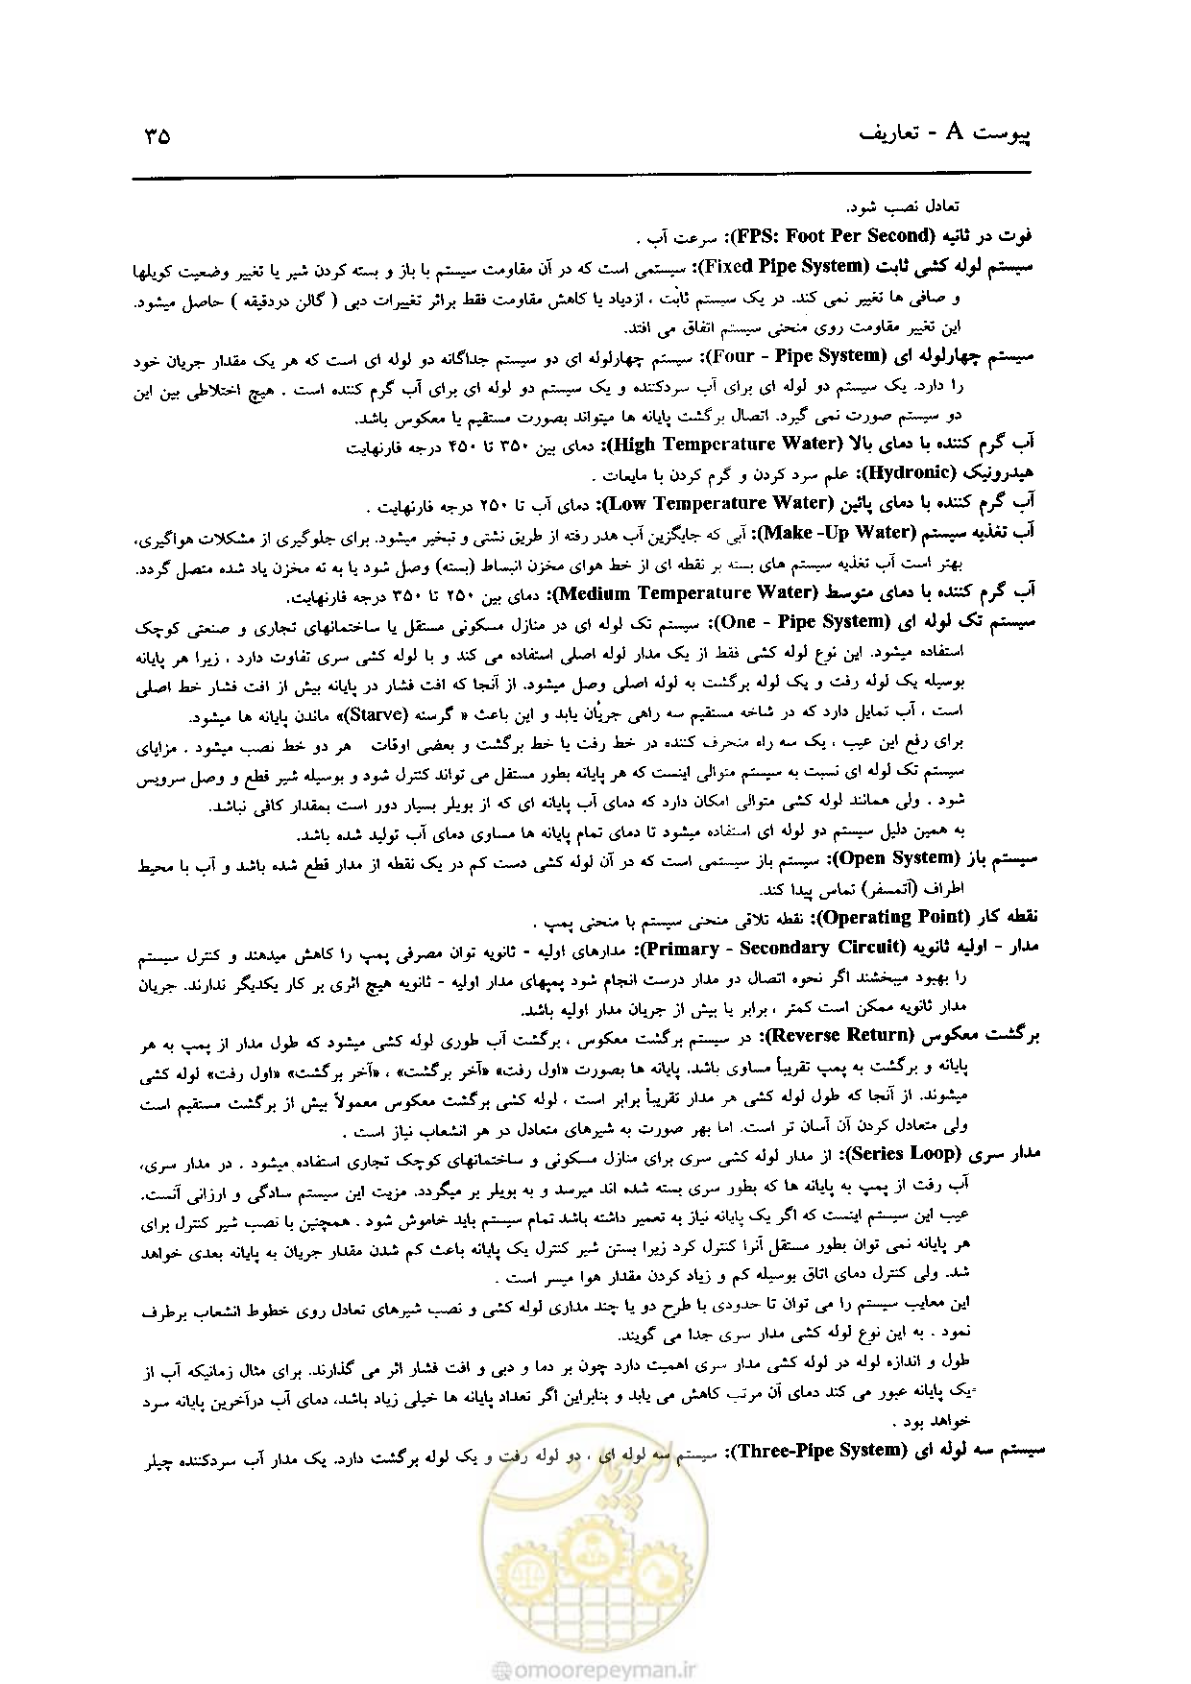 پیوست A - تعاریف
۳۵
تعادل نصب شود.
فوت در ثانیه (FPS: Foot Per Second): سرعت آب .
سیستم لوله کشی ثابت (Fixed Pipe System): سیستمی است که در آن مقاومت سیستم با باز و بسته کردن شیر یا تغییر وضعیت کویلها
و صافی ها تغییر نمی کند. در یک سیستم ثابت ، ازدیاد یا کاهش مقاومت فقط براثر تغییرات دبی ( گالن دردقیقه ) حاصل میشود.
این تغییر مقاومت روی منحنی سیستم اتفاق می افتد.
سیستم چهارلوله ای (Four - Pipe System): سیستم چهارلوله ای دو سیستم جداگانه دو لوله ای است که هر یک مقدار جریان خود
را دارد. یک سیستم دو لوله ای برای آب سردکننده و یک سیستم دو لوله ای برای آب گرم کننده است . هیچ اختلاطی بین این
دو سیستم صورت نمی گیرد. اتصال برگشت پایانه ها میتواند بصورت مستقیم یا معکوس باشد.
آب گرم کننده با دمای بالا (High Temperature Water): دمای بین ۳۵۰ تا ۴۵۰ درجه فارنهایت
هیدرونیک (Hydronic): علم سرد کردن و گرم کردن با مایعات .
آب گرم کننده با دمای پائین (Low Temperature Water): دمای آب تا ۲۵۰ درجه فارنهایت .
آب تغذیه سیستم (Make -Up Water): آبی که جایگزین آب هدر رفته از طریق نشتی و تبخیر میشود. برای جلوگیری از مشکلات هواگیری،
بهتر است آب تغذیه سیستم های بسته بر نقطه ای از خط هوای مخزن انبساط (بسته) وصل شود یا به ته مخزن یاد شده متصل گردد.
آب گرم کننده با دمای متوسط (Medium Temperature Water): دمای بین ۲۵۰ تا ۳۵۰ درجه فارنهایت.
سیستم تک لوله ای (One - Pipe System): سیستم تک لوله ای در منازل مسکونی مستقل یا ساختمانهای تجاری و صنعتی کوچک
استفاده میشود. این نوع لوله کشی فقط از یک مدار لوله اصلی استفاده می کند و با لوله کشی سری تفاوت دارد ، زیرا هر پایانه
بوسیله یک لوله رفت و یک لوله برگشت به لوله اصلی وصل میشود. از آنجا که افت فشار در پایانه بیش از افت فشار خط اصلی
است ، آب تمایل دارد که در شاخه مستقیم سه راهی جریان یابد و این باعث « گرسنه (Starve)» ماندن پایانه ها میشود.
برای رفع این عیب ، یک سه راه منحرف کننده در خط رفت یا خط برگشت و بعضی اوقات هر دو خط نصب میشود . مزایای
سیستم تک لوله ای نسبت به سیستم متوالی اینست که هر پایانه بطور مستقل می تواند کنترل شود و بوسیله شیر قطع و وصل سرویس
شود . ولی همانند لوله کشی متوالی امکان دارد که دمای آب پایانه ای که از بویلر بسیار دور است بمقدار کافی نباشد.
به همین دلیل سیستم دو لوله ای استفاده میشود تا دمای تمام پایانه ها مساوی دمای آب تولید شده باشد.
سیستم باز (Open System): سیستم باز سیستمی است که در آن لوله کشی دست کم در یک نقطه از مدار قطع شده باشد و آب با محیط
اطراف (آتمسفر) تماس پیدا کند.
نقطه کار (Operating Point): نقطه تلاقی منحنی سیستم با منحنی پمپ .
مدار - اولیه ثانویه (Primary - Secondary Circuit): مدارهای اولیه - ثانویه توان مصرفی پمپ را کاهش میدهند و کنترل سیستم
را بهبود میبخشند اگر نحوه اتصال دو مدار درست انجام شود پمپهای مدار اولیه - ثانویه هیچ اثری بر کار یکدیگر ندارند. جریان
مدار ثانویه ممکن است کمتر ، برابر یا بیش از جریان مدار اولیه باشد.
برگشت معکوس (Reverse Return): در سیستم برگشت معکوس ، برگشت آب طوری لوله کشی میشود که طول مدار از پمپ به هر
پایانه و برگشت به پمپ تقریباً مساوی باشد. پایانه ها بصورت «اول رفت» «آخر برگشت» ، «آخر برگشت» «اول رفت» لوله کشی
میشوند. از آنجا که طول لوله کشی هر مدار تقریباً برابر است ، لوله کشی برگشت معکوس معمولاً بیش از برگشت مستقیم است
ولی متعادل کردن آن آسان تر است. اما بهر صورت به شیرهای متعادل در هر انشعاب نیاز است .
مدار سری (Series Loop): از مدار لوله کشی سری برای منازل مسکونی و ساختمانهای کوچک تجاری استفاده میشود . در مدار سری،
آب رفت از پمپ به پایانه ها که بطور سری بسته شده اند میرسد و به بویلر بر میگردد. مزیت این سیستم سادگی و ارزانی آنست.
عیب این سیستم اینست که اگر یک پایانه نیاز به تعمیر داشته باشد تمام سیستم باید خاموش شود . همچنین با نصب شیر کنترل برای
هر پایانه نمی توان بطور مستقل آنرا کنترل کرد زیرا بستن شیر کنترل یک پایانه باعث کم شدن مقدار جریان به پایانه بعدی خواهد
شد. ولی کنترل دمای اتاق بوسیله کم و زیاد کردن مقدار هوا میسر است .
این معایب سیستم را می توان تا حدودی با طرح دو یا چند مداری لوله کشی و نصب شیرهای تعادل روی خطوط انشعاب برطرف
نمود . به این نوع لوله کشی مدار سری جدا می گویند.
طول و اندازه لوله در لوله کشی مدار سری اهمیت دارد چون بر دما و دبی و افت فشار اثر می گذارند. برای مثال زمانیکه آب از
یک پایانه عبور می کند دمای آن مرتب کاهش می یابد و بنابراین اگر تعداد پایانه ها خیلی زیاد باشد، دمای آب درآخرین پایانه سرد
خواهد بود .
سیستم سه لوله ای (Three-Pipe System): سیستم سه لوله ای ، دو لوله رفت و یک لوله برگشت دارد. یک مدار آب سردکننده چیلر
امور پیمان
@omoorepeyman.ir